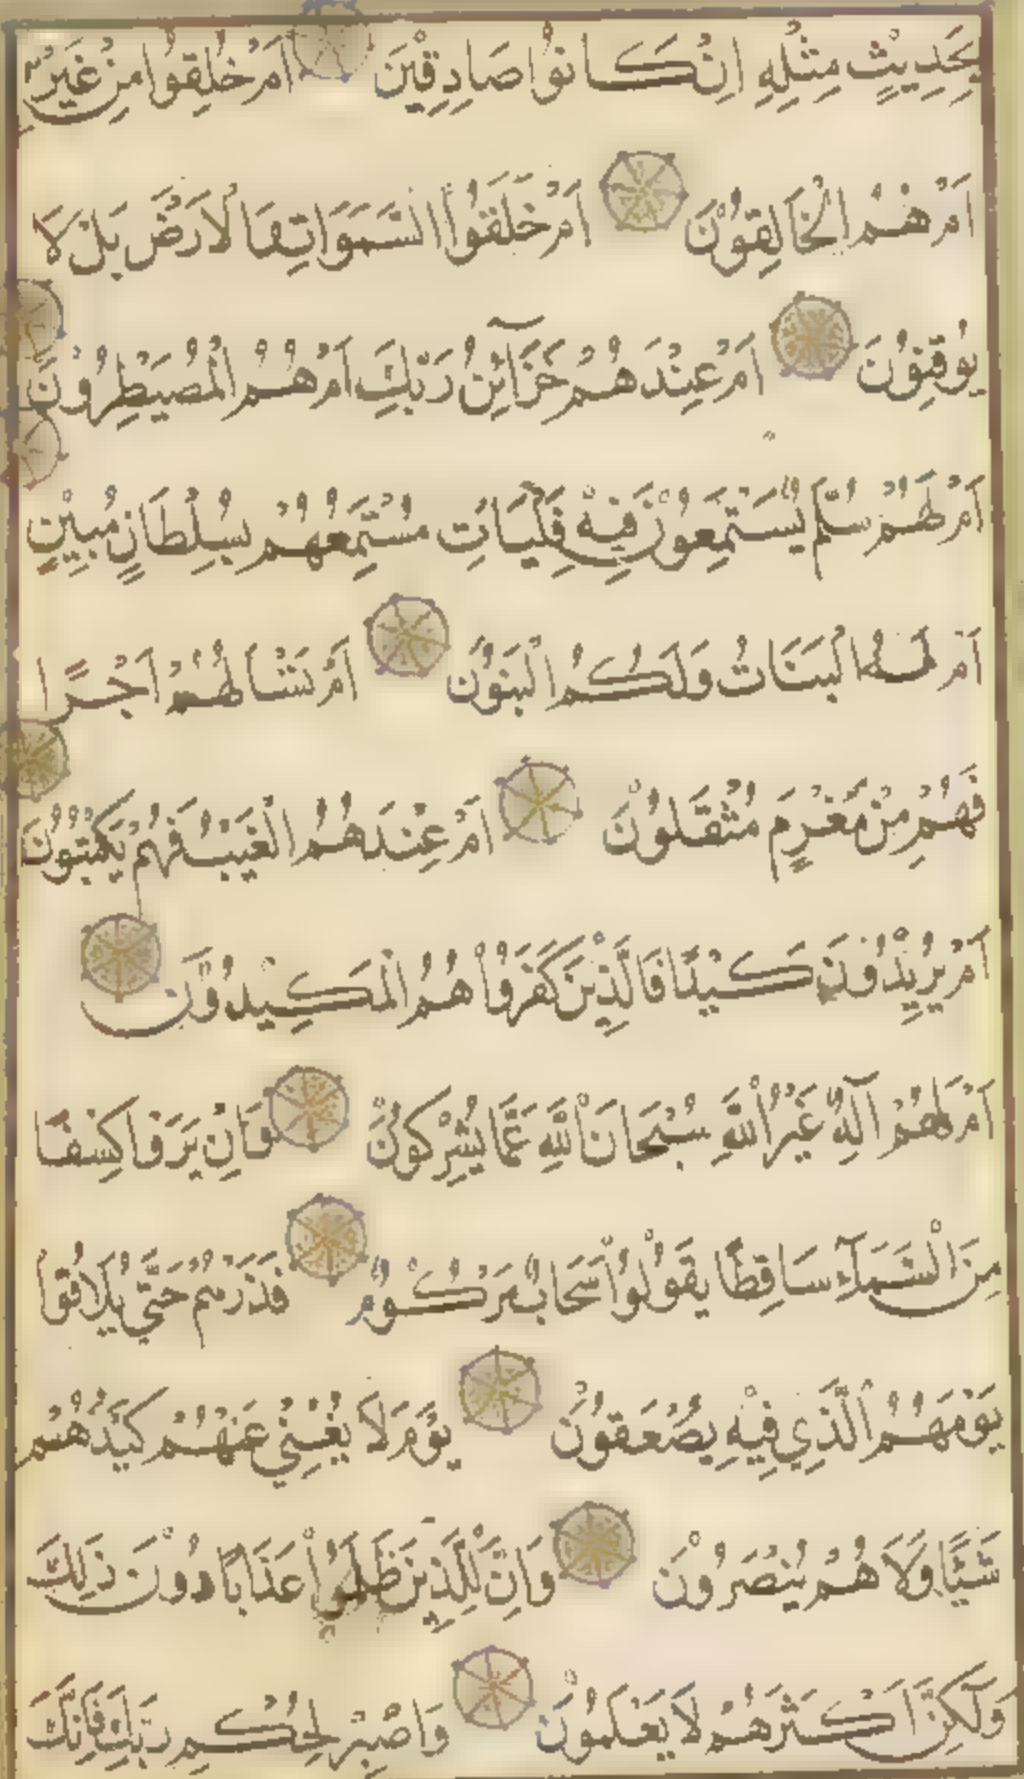 بِحَدِيثٍ مِثْلِهِ اِنْ كَانُوا صَادِقِينَ اَمْ خُلِقُوا مِنْ غَيْرِ
اَمْ هُمُ الْخَالِقُونَ اَمْ خَلَقُوا السَّمَوَاتِ وَالْاَرْضَ بَلْ لَا
يُوقِنُونَ اَمْ عِنْدَهُمْ خَزَآئِنُ رَبِّكَ اَمْ هُمُ الْمُصَيْطِرُونَ
اَمْ لَهُمْ سُلَّمٌ يَسْتَمِعُونَ فِيهِ فَلْيَاْتِ مُسْتَمِعُهُمْ بِسُلْطَانٍ مُبِينٍ
اَمْ لَهُ الْبَنَاتُ وَلَكُمُ الْبَنُونَ اَمْ تَسْـَٔالُهُمْ اَجْرًا
فَهُمْ مِنْ مَغْرَمٍ مُثْقَلُونَ اَمْ عِنْدَهُمُ الْغَيْبُ فَهُمْ يَكْتُبُونَ
اَمْ يُرِيدُونَ كَيْدًا فَالَّذِينَ كَفَرُوا هُمُ الْمَكِيدُونَ
اَمْ لَهُمْ اِلَهٌ غَيْرُ اللَّهِ سُبْحَانَ اللَّهِ عَمَّا يُشْرِكُونَ وَاِنْ يَرَوْا كِسْفًا
مِنَ السَّمَآءِ سَاقِطًا يَقُولُوا سَحَابٌ مَرْكُومٌ فَذَرْهُمْ حَتَّى يُلَاقُوا
يَوْمَهُمُ الَّذِي فِيهِ يُصْعَقُونَ يَوْمَ لَا يُغْنِي عَنْهُمْ كَيْدُهُمْ
شَيْئًا وَلَا هُمْ يُنْصَرُونَ وَاِنَّ لِلَّذِينَ ظَلَمُوا عَذَابًا دُونَ ذَلِكَ
وَلَكِنَّ اَكْثَرَهُمْ لَا يَعْلَمُونَ وَاصْبِرْ لِحُكْمِ رَبِّكَ فَاِنَّكَ